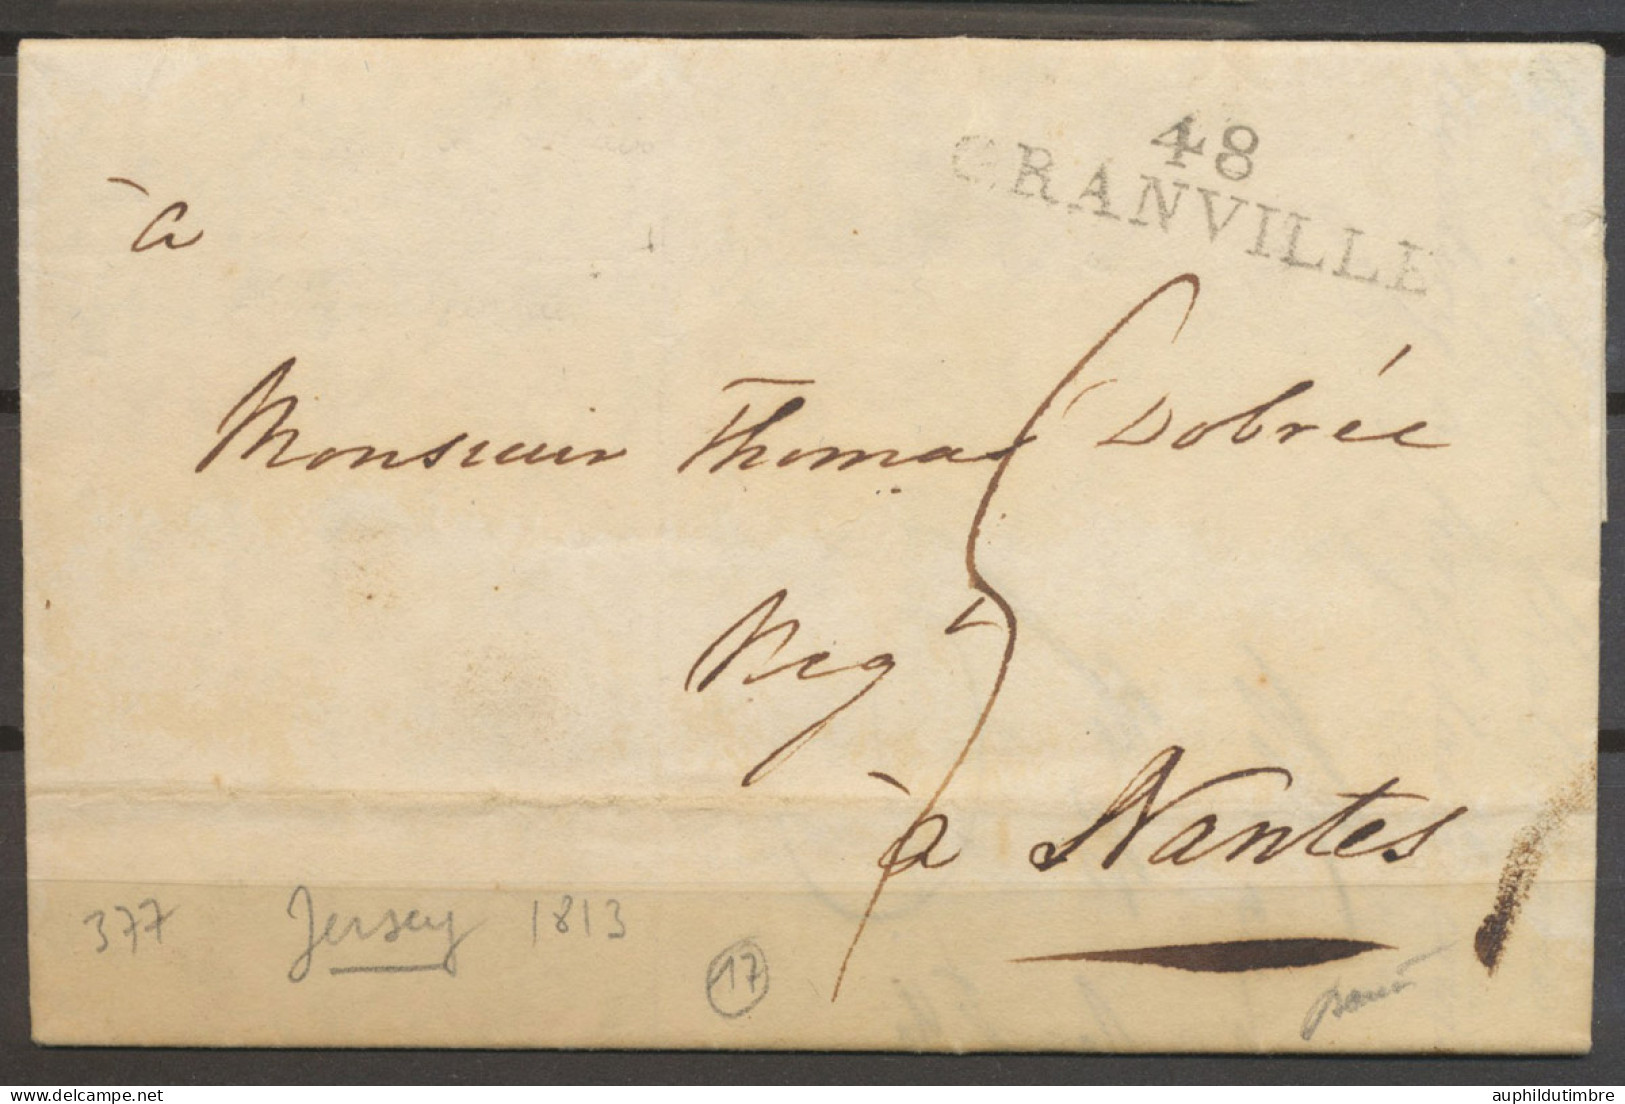 48
GRANVILLE
à
Monsieur Thomas Dobrée
Negt
à Nantes
377 Jersey 1813
17
www.delcampe.net
auphildutimbre